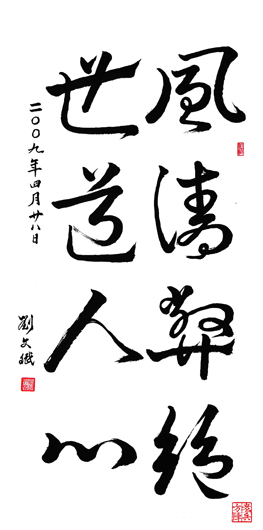 風清弊絕
世道人心
二〇〇九年四月廿八日
劉文